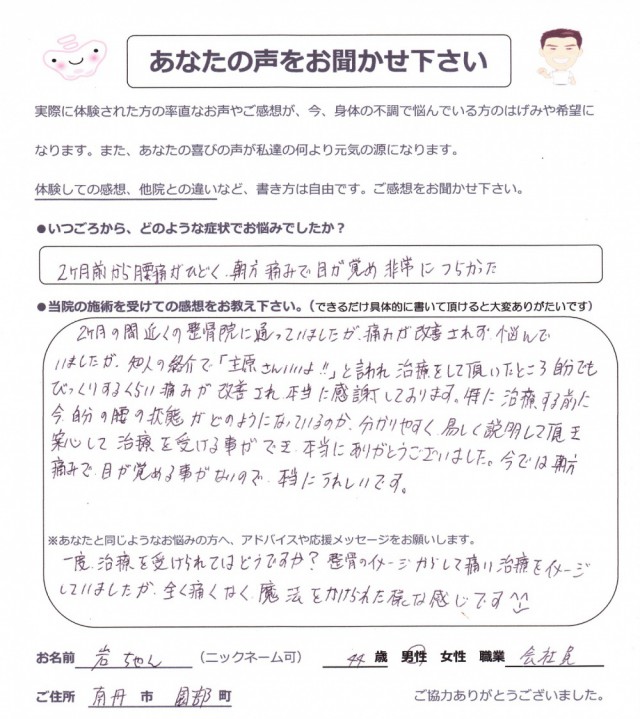 あなたの声をお聞かせ下さい
実際に体験された方の率直なお声やご感想が、今、身体の不調で悩んでいる方のはげみや希望に
なります。また、あなたの喜びの声が私達の何より元気の源になります。
体験しての感想、他院との違いなど、書き方は自由です。ご感想をお聞かせ下さい。
●いつごろから、どのような症状でお悩みでしたか？
2ヶ月前から腰痛がひどく、朝方痛みで目が覚め非常につらかった
●当院の施術を受けての感想をお教え下さい。（できるだけ具体的に書いて頂けると大変ありがたいです）
2ヶ月の間近くの整骨院に通っていましたが、痛みが改善されず、悩んで
いましたが、知人の紹介で「主原さんいいよ!!」と言われ治療をして頂いたところ自分でも
びっくりするくらい痛みが改善され本当に感謝しております。特に治療する前に
今自分の腰の状態がどのようになっているのか、分かりやすく、易しく説明して頂き
安心して治療を受ける事ができ、本当にありがとうございました。今では朝方
痛みで、目が覚める事がないので、本当にうれしいです。
※あなたと同じようなお悩みの方へ、アドバイスや応援メッセージをお願いします。
一度、治療を受けられてはどうですか？整骨のイメージからして痛い治療をイメージ
していましたが、全く痛くなく、魔法をかけられた様な感じです^^
お名前 岩ちゃん （ニックネーム可） 44 歳 男性 女性 職業 会社員
ご住所 南丹 市 園部 町 ご協力ありがとうございました。